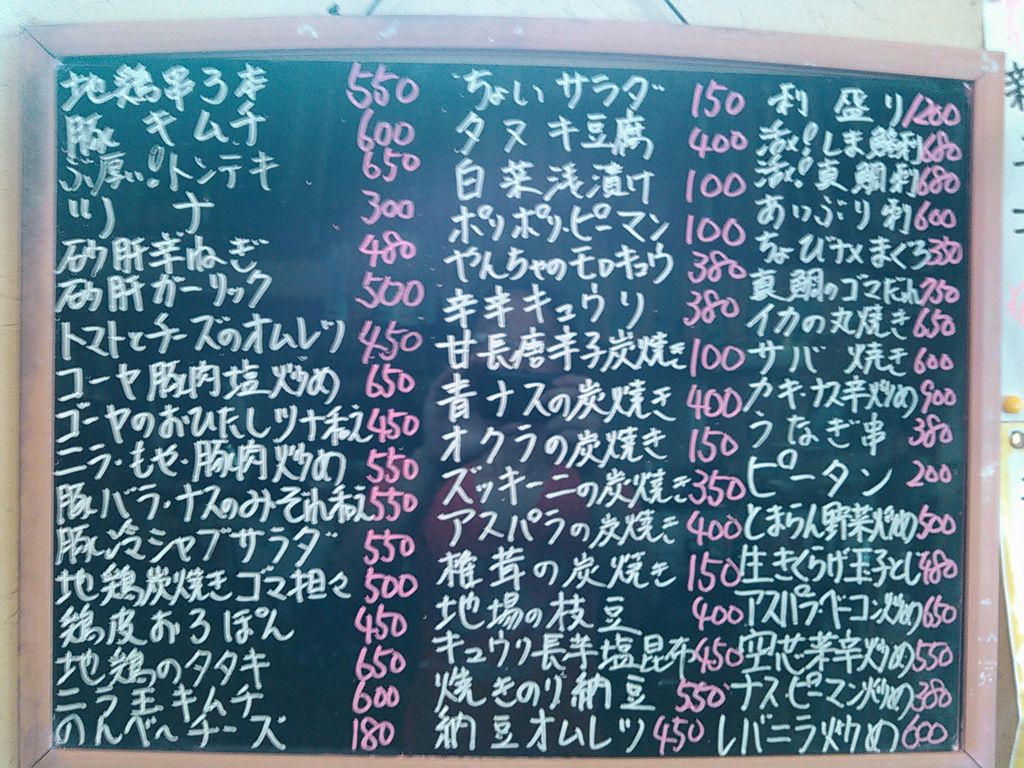 地鶏串3本 550
豚 キムチ 600
ぶ厚い!トンテキ 650
ツナ 300
砂肝芽ねぎ 480
砂肝ガーリック 500
トマトとチーズのオムレツ 450
ゴーヤ豚肉塩炒め 650
ゴーヤのおひたしツナ和え 450
ニラ・もやし・豚肉炒め 550
豚バラ・ナスのみぞれ和え 550
豚冷シャブサラダ 550
地鶏炭焼きゴマ担々 500
鶏皮おろぽん 450
地鶏のタタキ 650
ニラ玉キムチ 600
のんべ〜チーズ 180
ちょいサラダ 150
タヌキ豆腐 400
白菜浅漬け 100
ポリポリ・ピーマン 100
やんちゃのモロキュウ 380
辛辛キュウリ 380
甘長唐辛子炭焼き 100
青ナスの炭焼き 400
オクラの炭焼き 150
ズッキーニの炭焼き 350
アスパラの炭焼き 400
椎茸の炭焼き 150
地場の枝豆 400
キュウリ長芋塩昆布 450
焼きのり納豆 550
納豆オムレツ 450
刺 盛り 1200
活〆!しま鯵刺 680
活〆!真鯛刺 680
あいぶり刺 600
ちょびヅメまぐろ 350
真鯛のゴマだれ 750
イカの丸焼き 650
サバ 焼き 600
カキ・ナス辛炒め 900
うなぎ串 380
ピータン 200
とまらん野菜炒め 500
生きくらげ玉子とじ 480
アスパラ・ベーコン炒め 650
空芯菜辛炒め 550
ナスピーマン炒め 380
レバニラ炒め 600